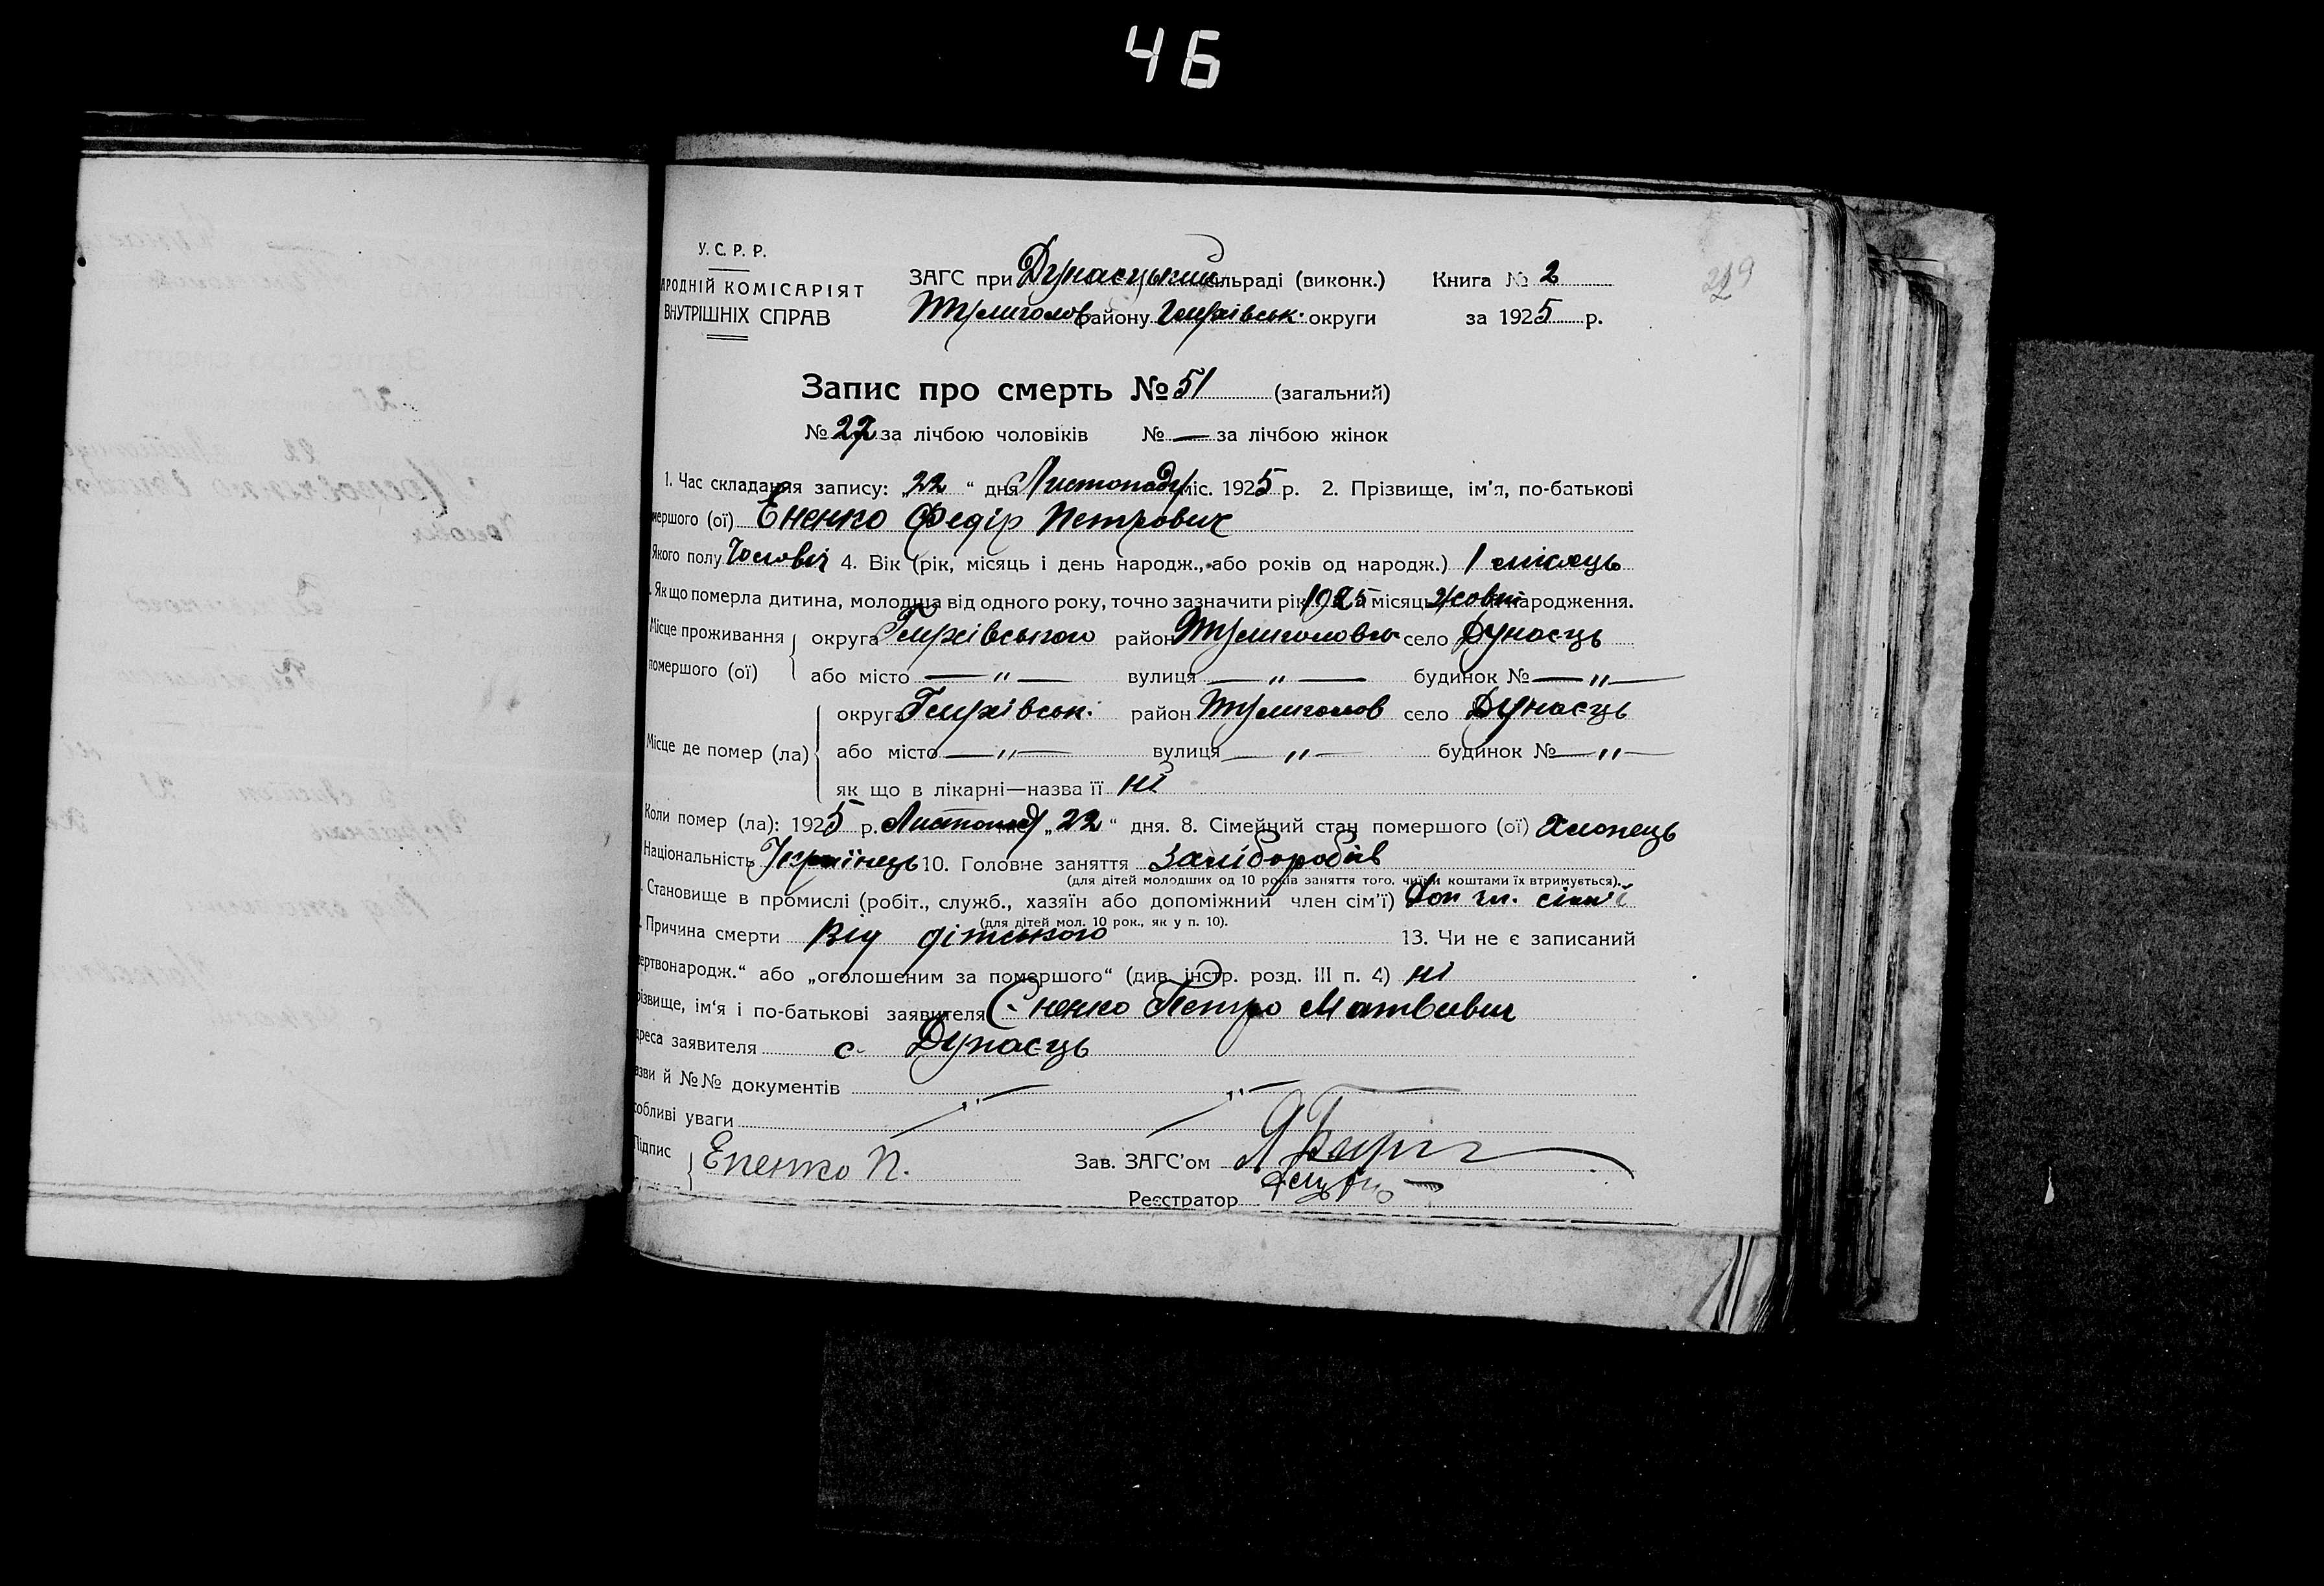 46
219
У. С. Р. Р.
АРОДНІЙ КОМІСАРІЯТ
ВНУТРІШНІХ СПРАВ
ЗАГС при Дунаєцькій сільраді (виконк.) Книга № 2
Тулиголов району Глухівськ. округи за 1925 р.
Запис про смерть № 51 (загальний)
№ 27 за лічбою чоловіків № — за лічбою жінок
1. Час складання запису: „22“ дня Листопаду міс. 1925 р. 2. Прізвище, ім'я, по-батькові
мершого (ої) Єненко Федір Петрович
Якого полу Чоловіч 4. Вік (рік, місяць і день народж., або років од народж.) 1 місяць
Якщо померла дитина, молодша від одного року, точно зазначити рік 1925 місяць Жовт народження.
Місце проживання помершого (ої) округа Глухівського район Тулиголовськ село Дунаєць
або місто — „ — вулиця — „ — будинок № — „ —
Місце де помер (ла) округа Глухівськ. район Тулиголов село Дунаєць
або місто — „ — вулиця — „ — будинок № — „ —
як що в лікарні—назва її ні
Коли помер (ла): 1925 р. Листопад „22“ дня. 8. Сімейний стан помершого (ої) Хлопець
Національність Українець 10. Головне заняття
(для дітей молодших од 10 років заняття того, чиїми коштами їх втримується).
Становище в промислі (робіт., служб., хазяїн або допоміжний член сім'ї) Доп чл. сім'ї
(для дітей мол. 10 рок., як у п. 10).
Причина смерти Від дітського 13. Чи не є записаний
ертвонародж.“ або „оголошеним за помершого“ (див. інстр. розд. III п. 4) ні
різвище, ім'я і по-батькові заявителя Єненко Петро Матвієвич
дреса заявителя с. Дунаєць
азви й №№ документів
собливі уваги
Підпис Єненко П. Зав. ЗАГС'ом
Реєстратор